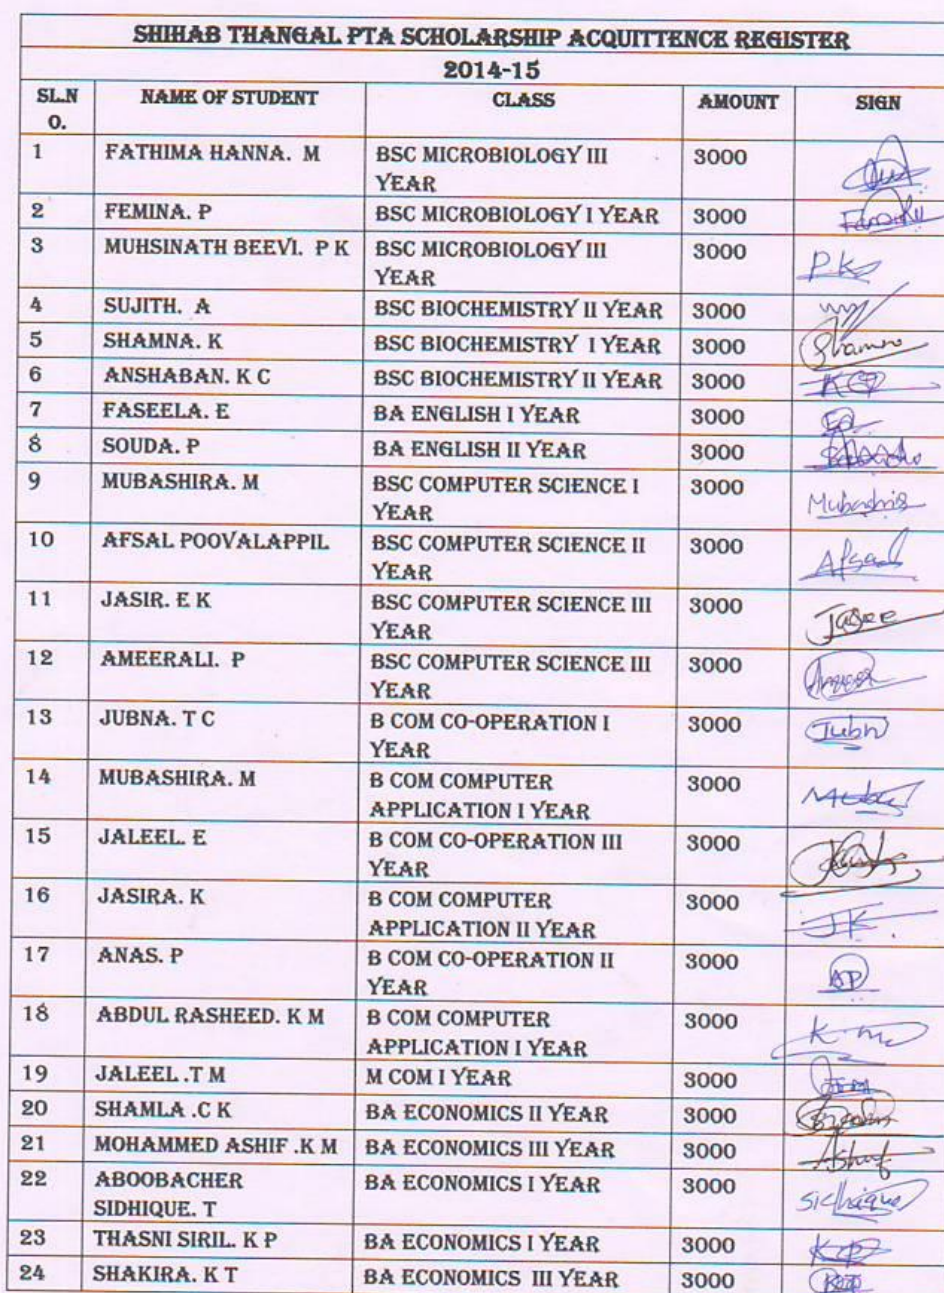 SHIHAB THANGAL PTA SCHOLARSHIP ACQUITTENCE REGISTER
2014-15
SL.N O. NAME OF STUDENT CLASS AMOUNT SIGN
1 FATHIMA HANNA. M BSC MICROBIOLOGY III 3000
YEAR
2 FEMINA. P BSC MICROBIOLOGY I YEAR 3000
3 MUHSINATH BEEVI. P K BSC MICROBIOLOGY III 3000
YEAR P.K
4 SUJITH. A BSC BIOCHEMISTRY II YEAR 3000
5 SHAMNA. K BSC BIOCHEMISTRY I YEAR 3000
6 ANSHABAN. K C BSC BIOCHEMISTRY II YEAR 3000
7 FASEELA. E BA ENGLISH I YEAR 3000
8 SOUDA. P BA ENGLISH II YEAR 3000
9 MUBASHIRA. M BSC COMPUTER SCIENCE I 3000
YEAR
10 AFSAL POOVALAPPIL BSC COMPUTER SCIENCE II 3000
YEAR Afsal
11 JASIR. E K BSC COMPUTER SCIENCE III 3000
YEAR
12 AMEERALI. P BSC COMPUTER SCIENCE III 3000
YEAR
13 JUBNA. T C B COM CO-OPERATION I 3000 Jubn
YEAR
14 MUBASHIRA. M B COM COMPUTER 3000
APPLICATION I YEAR
15 JALEEL. E B COM CO-OPERATION III 3000
YEAR
16 JASIRA. K B COM COMPUTER 3000
APPLICATION II YEAR JK.
17 ANAS. P B COM CO-OPERATION II 3000 AP
YEAR
18 ABDUL RASHEED. K M B COM COMPUTER 3000
APPLICATION I YEAR
19 JALEEL .T M M COM I YEAR 3000
20 SHAMLA .C K BA ECONOMICS II YEAR 3000
21 MOHAMMED ASHIF .K M BA ECONOMICS III YEAR 3000
22 ABOOBACHER BA ECONOMICS I YEAR 3000
SIDHIQUE. T Sidhique
23 THASNI SIRIL. K P BA ECONOMICS I YEAR 3000 KP
24 SHAKIRA. K T BA ECONOMICS III YEAR 3000